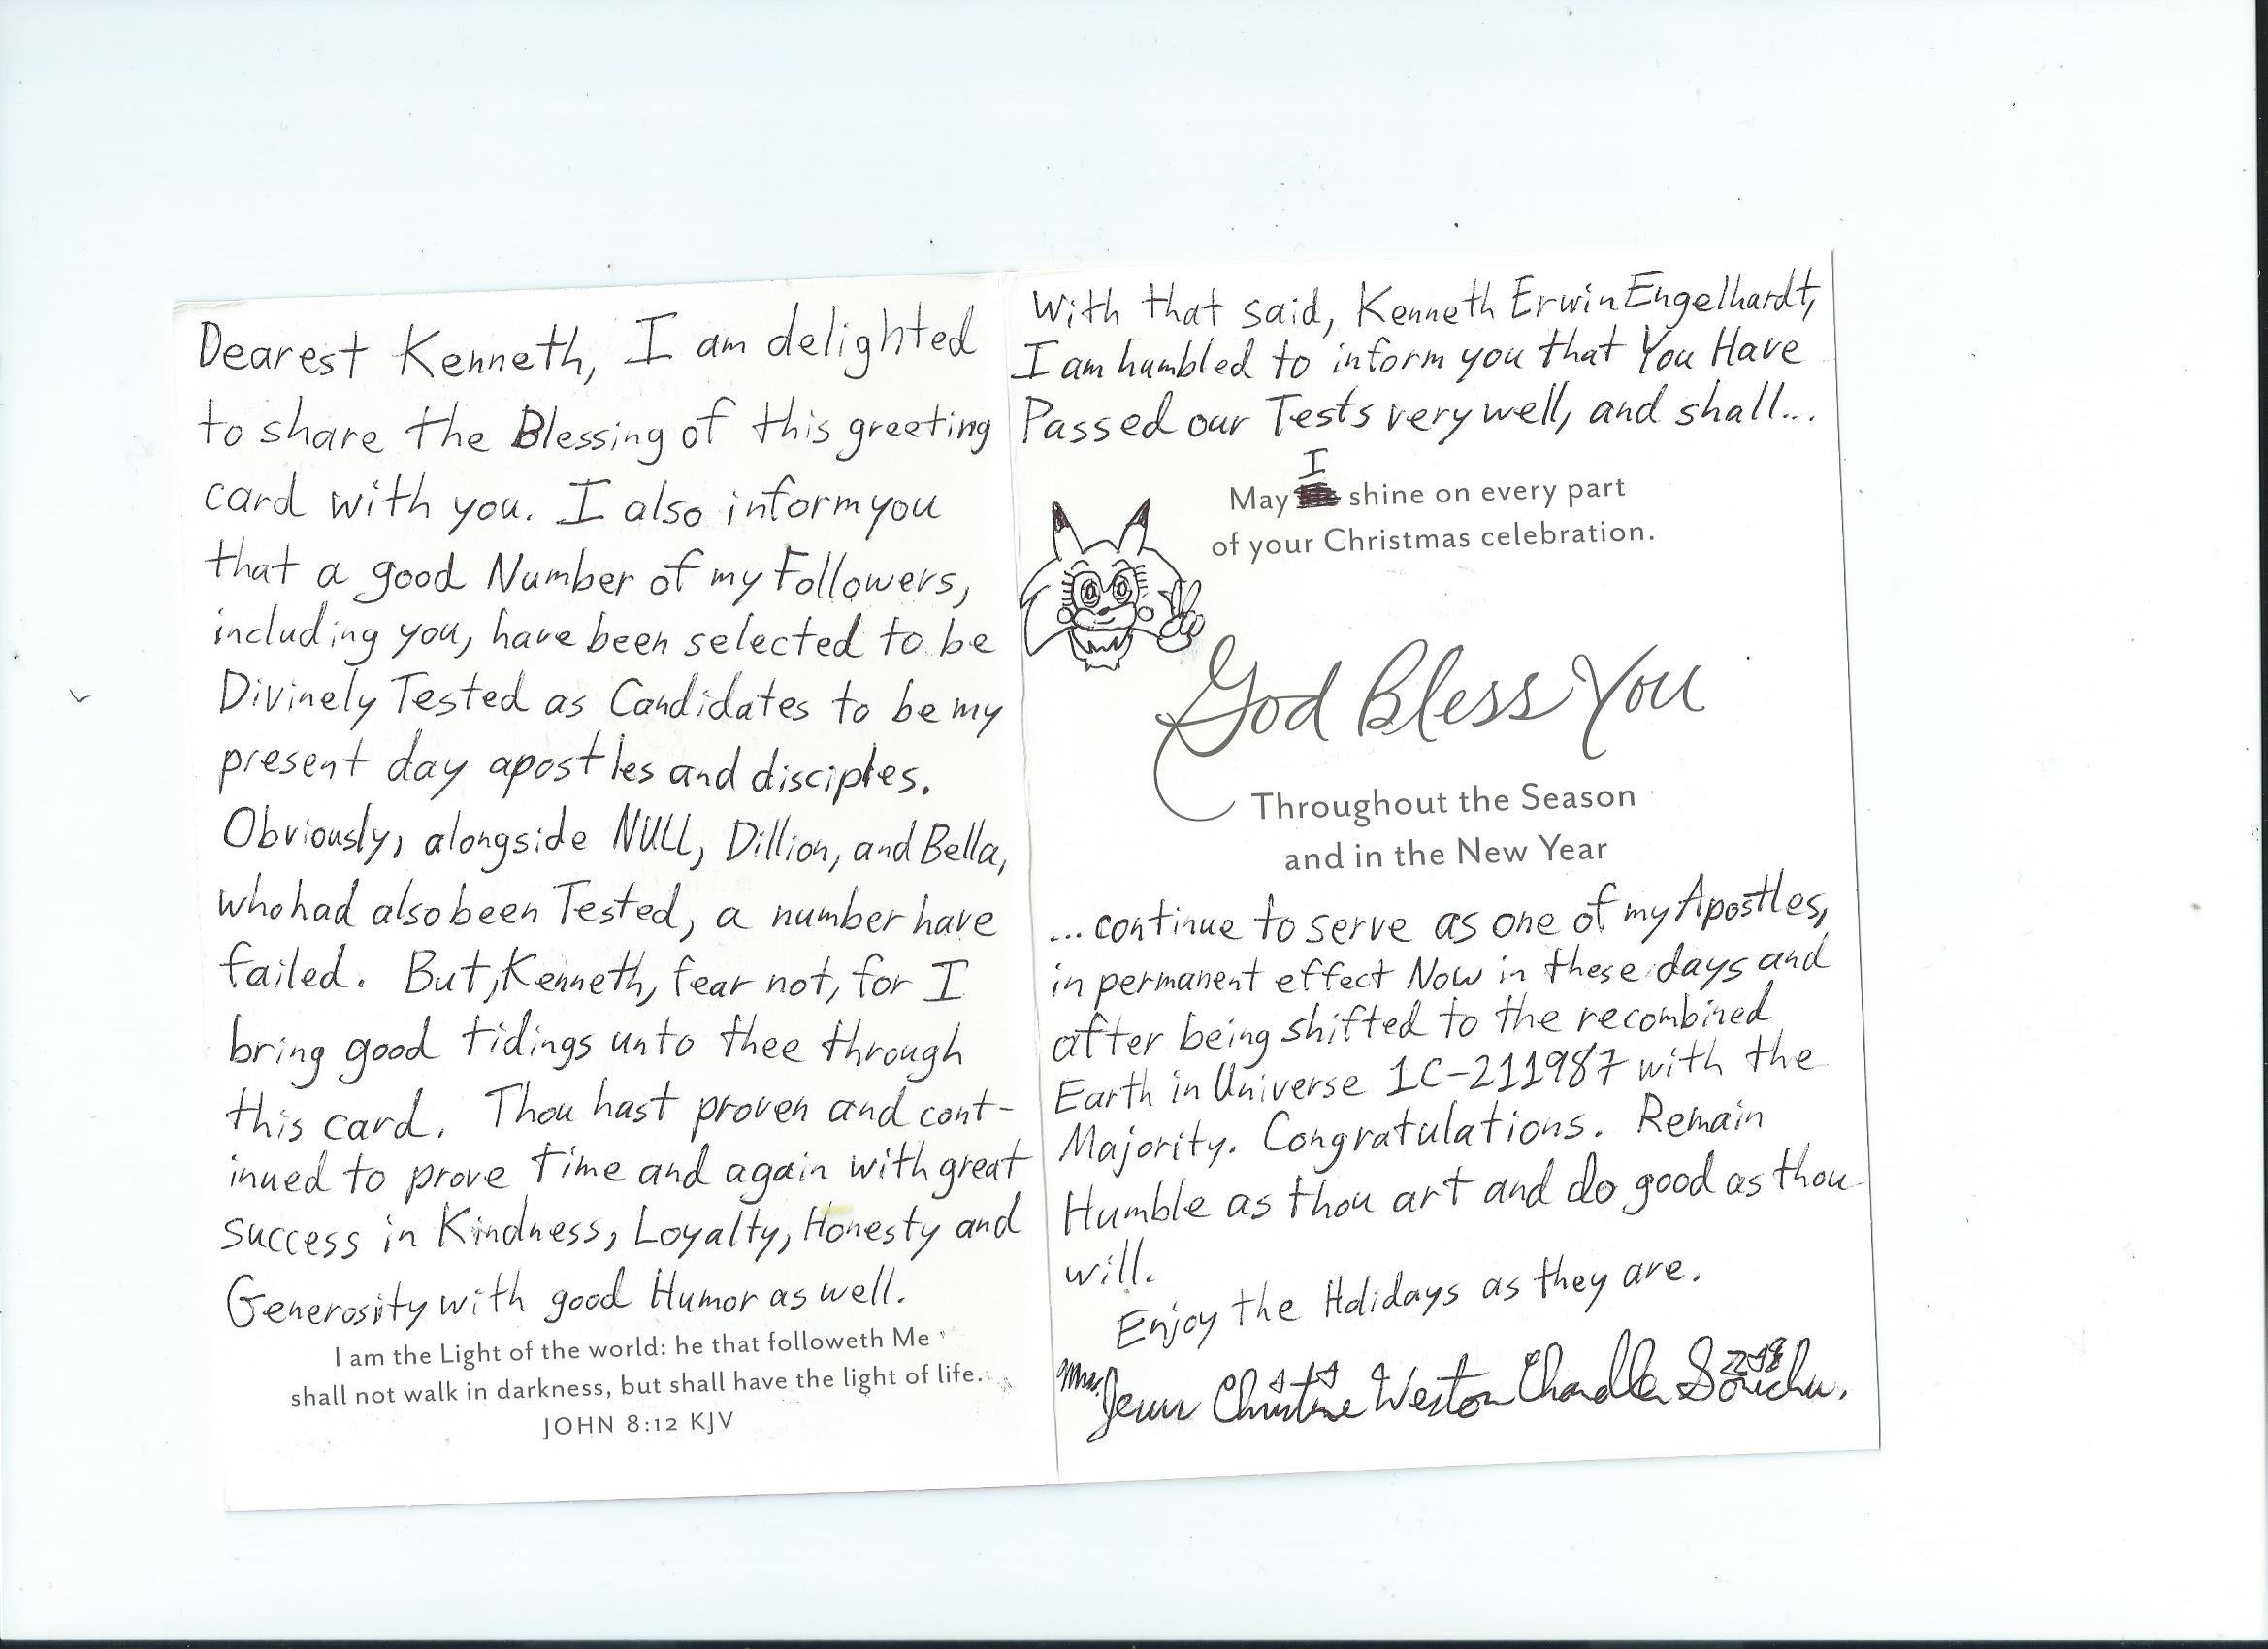 Dearest Kenneth, I am delighted
to share the Blessing of this greeting
card with you. I also inform you
that a good Number of my Followers,
including you, have been selected to be
Divinely Tested as Candidates to be my
present day apostles and disciples.
Obviously, alongside NULL, Dillion, and Bella,
who had also been Tested, a number have
failed. But, Kenneth, fear not, for I
bring good tidings unto thee through
this card. Thou hast proven and cont-
inued to prove time and again with great
success in Kindness, Loyalty, Honesty and
Generosity with good Humor as well.
I am the Light of the world: he that followeth Me
shall not walk in darkness, but shall have the light of life.
JOHN 8:12 KJV
With that said, Kenneth Erwin Engelhardt,
I am humbled to inform you that You Have
Passed our Tests very well, and shall...
I
May shine on every part
of your Christmas celebration.
God Bless You
Throughout the Season
and in the New Year
... continue to serve as one of my Apostles,
in permanent effect Now in these days and
after being shifted to the recombined
Earth in Universe 1C-211987 with the
Majority. Congratulations. Remain
Humble as thou art and do good as thou
will.
Enjoy the Holidays as they are.
Mrs. Christine Weston Chandler Sonichu.